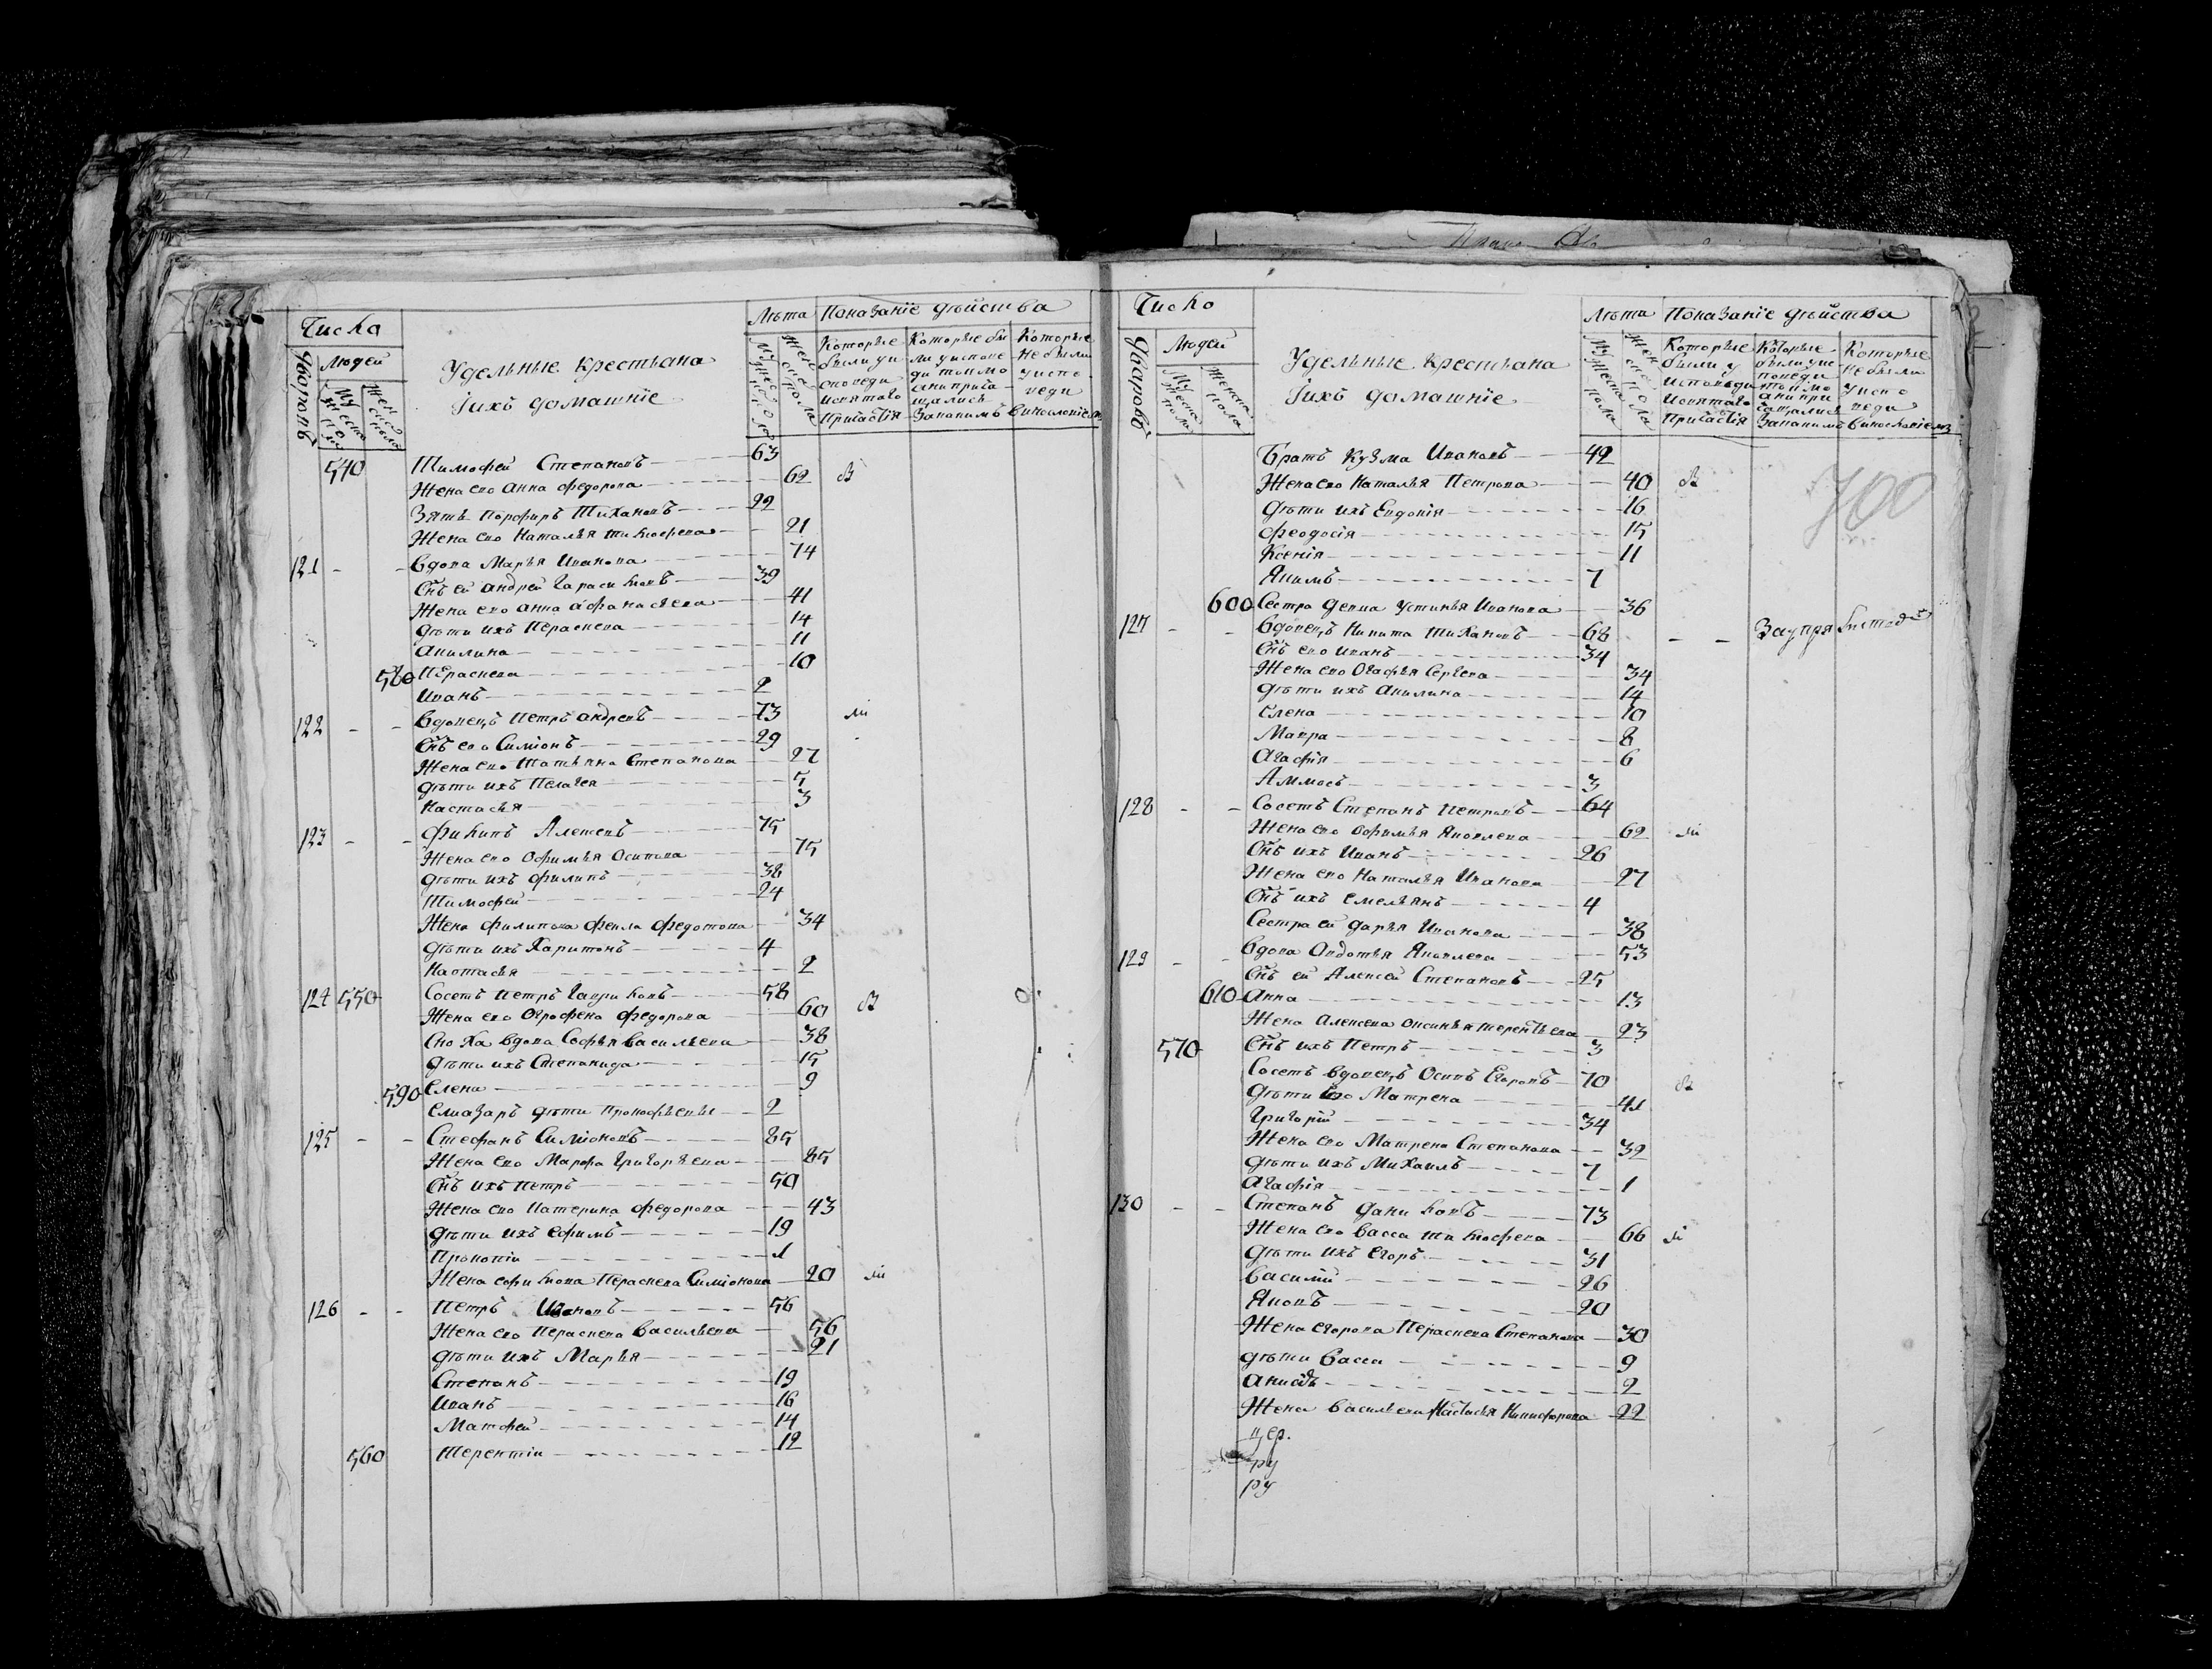 Число
Дворовъ
Людей
Мужеска пола
Женска пола
Удельные крестьяна
Iихъ домашнiе
Лѣта
Мужеска пола
Женска пола
Показанiе дѣйства
Которые были у исповеди и святаго причастiя
Которые были у исповеди токмо а не причащались за каким
Которые не были у исповеди
540 Тимофей Степановъ 63
Жена ево Анна Федорова 62
Зять Порфиръ Тихановъ 22
Жена ево Наталья Тимофеева 21
121 Вдова Марья Иванова 74
Снъ ей Андрей Гарасимовъ 39
Жена ево Анна Афанасьева 41
Дѣти ихъ Пераскева 14
Акилина 11
580 Пераскева 10
Иванъ 2
122 Вдовецъ Петръ Андреевъ 73
Снъ ево Симiонъ 29
Жена ево Татьяна Степанова 27
Дѣти ихъ Пелагея 5
Настасья 3
123 Филипъ Алексевъ 75
Жена ево Офимья Осипова 75
Дѣти ихъ Филипъ 38
Тимофей 24
Жена Филипова Фекла Федотова 34
Дѣти ихъ Харитонъ 4
Настасья 2
124 550 Сосетъ Петръ Гавриловъ 58
Жена ево Ографена Федорова 60
Сноха вдова Софья Васильева 38
Дѣти ихъ Степанида 15
590 Елена 9
Елиазаръ дѣти Прокофьевы 2
125 Стефанъ Симiоновъ 85
Жена ево Марфа Григорьева 85
Снъ ихъ Петръ 50
Жена ево Катерина Федорова 43
Дѣти ихъ Ефимъ 19
Прокопiй 1
Жена Ефимова Пераскева Симiонова 20
126 Петръ Ивановъ 56
Жена ево Пераскева Васильева 56
Дѣти ихъ Марья 21
Степанъ 19
Иванъ 16
Матфей 14
560 Терентiи 12
Число
Дворовъ
Людей
Мужеска пола
Женска пола
Удельные крестьяна
Iихъ домашнiе
Лѣта
Мужеска пола
Женска пола
Показанiе дѣйства
Которые были у исповеди и святаго причастiя
Которые были у исповеди токмо а не причащались за каким
Которые не были у исповеди
Братъ Кузма Ивановъ 42
Жена ево Наталья Петрова 40
Дѣти ихъ Евдокiя 16
Феодосiя 15
Ксенiя 11
Якимъ 7
700
600 Сестра девка Устинья Иванова 36
127 Вдовецъ Никита Тихановъ 68
Снъ ево Иванъ 34
Жена ево Огафья Сергева 34
Дѣти ихъ Акилина 14
Елена 10
Мавра 8
Агафiя 6
Аммосъ 3
128 Сосетъ Степанъ Петровъ 64
Жена ево Офимья Яковлева 62
Снъ ихъ Иванъ 26
Жена ево Наталья Иванова 27
Снъ ихъ Емельянъ 4
Сестра ей Дарья Иванова 38
129 Вдова Овдотья Яковлева 53
Снъ ей Алексей Степановъ 25
610 Анна 13
Жена Алексева Оксинья Терентьева 23
570 Снъ ихъ Петръ 3
Сосетъ вдовецъ Осипъ Егоровъ 70
Дѣти ево Матрена 41
Григорiй 34
Жена ево Матрена Степанова 32
Дѣти ихъ Михаилъ 7
Агафiя 1
130 Степанъ Даниловъ 73
Жена ево Васса Тимофеева 66
Дѣти ихъ Егоръ 31
Василiй 26
Яковъ 20
Жена Егорова Пераскева Степанова 30
Дѣти Васса 9
2
Жена Васильева Настасья Никифорова 22
цер.
ру
ру